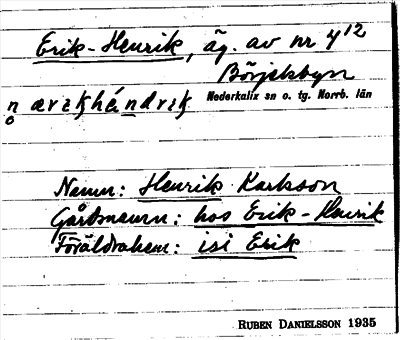 Erik-Henrik, äg. av nr 4¹²
Börjelsbyn
Nederkalix sn o. tg. Norrb. län
Namn: Henrik Karlsson
Gårdsnamn: hos Erik-Henrik
Föräldrahem: isi Erik
RUBEN DANIELSSON 1935